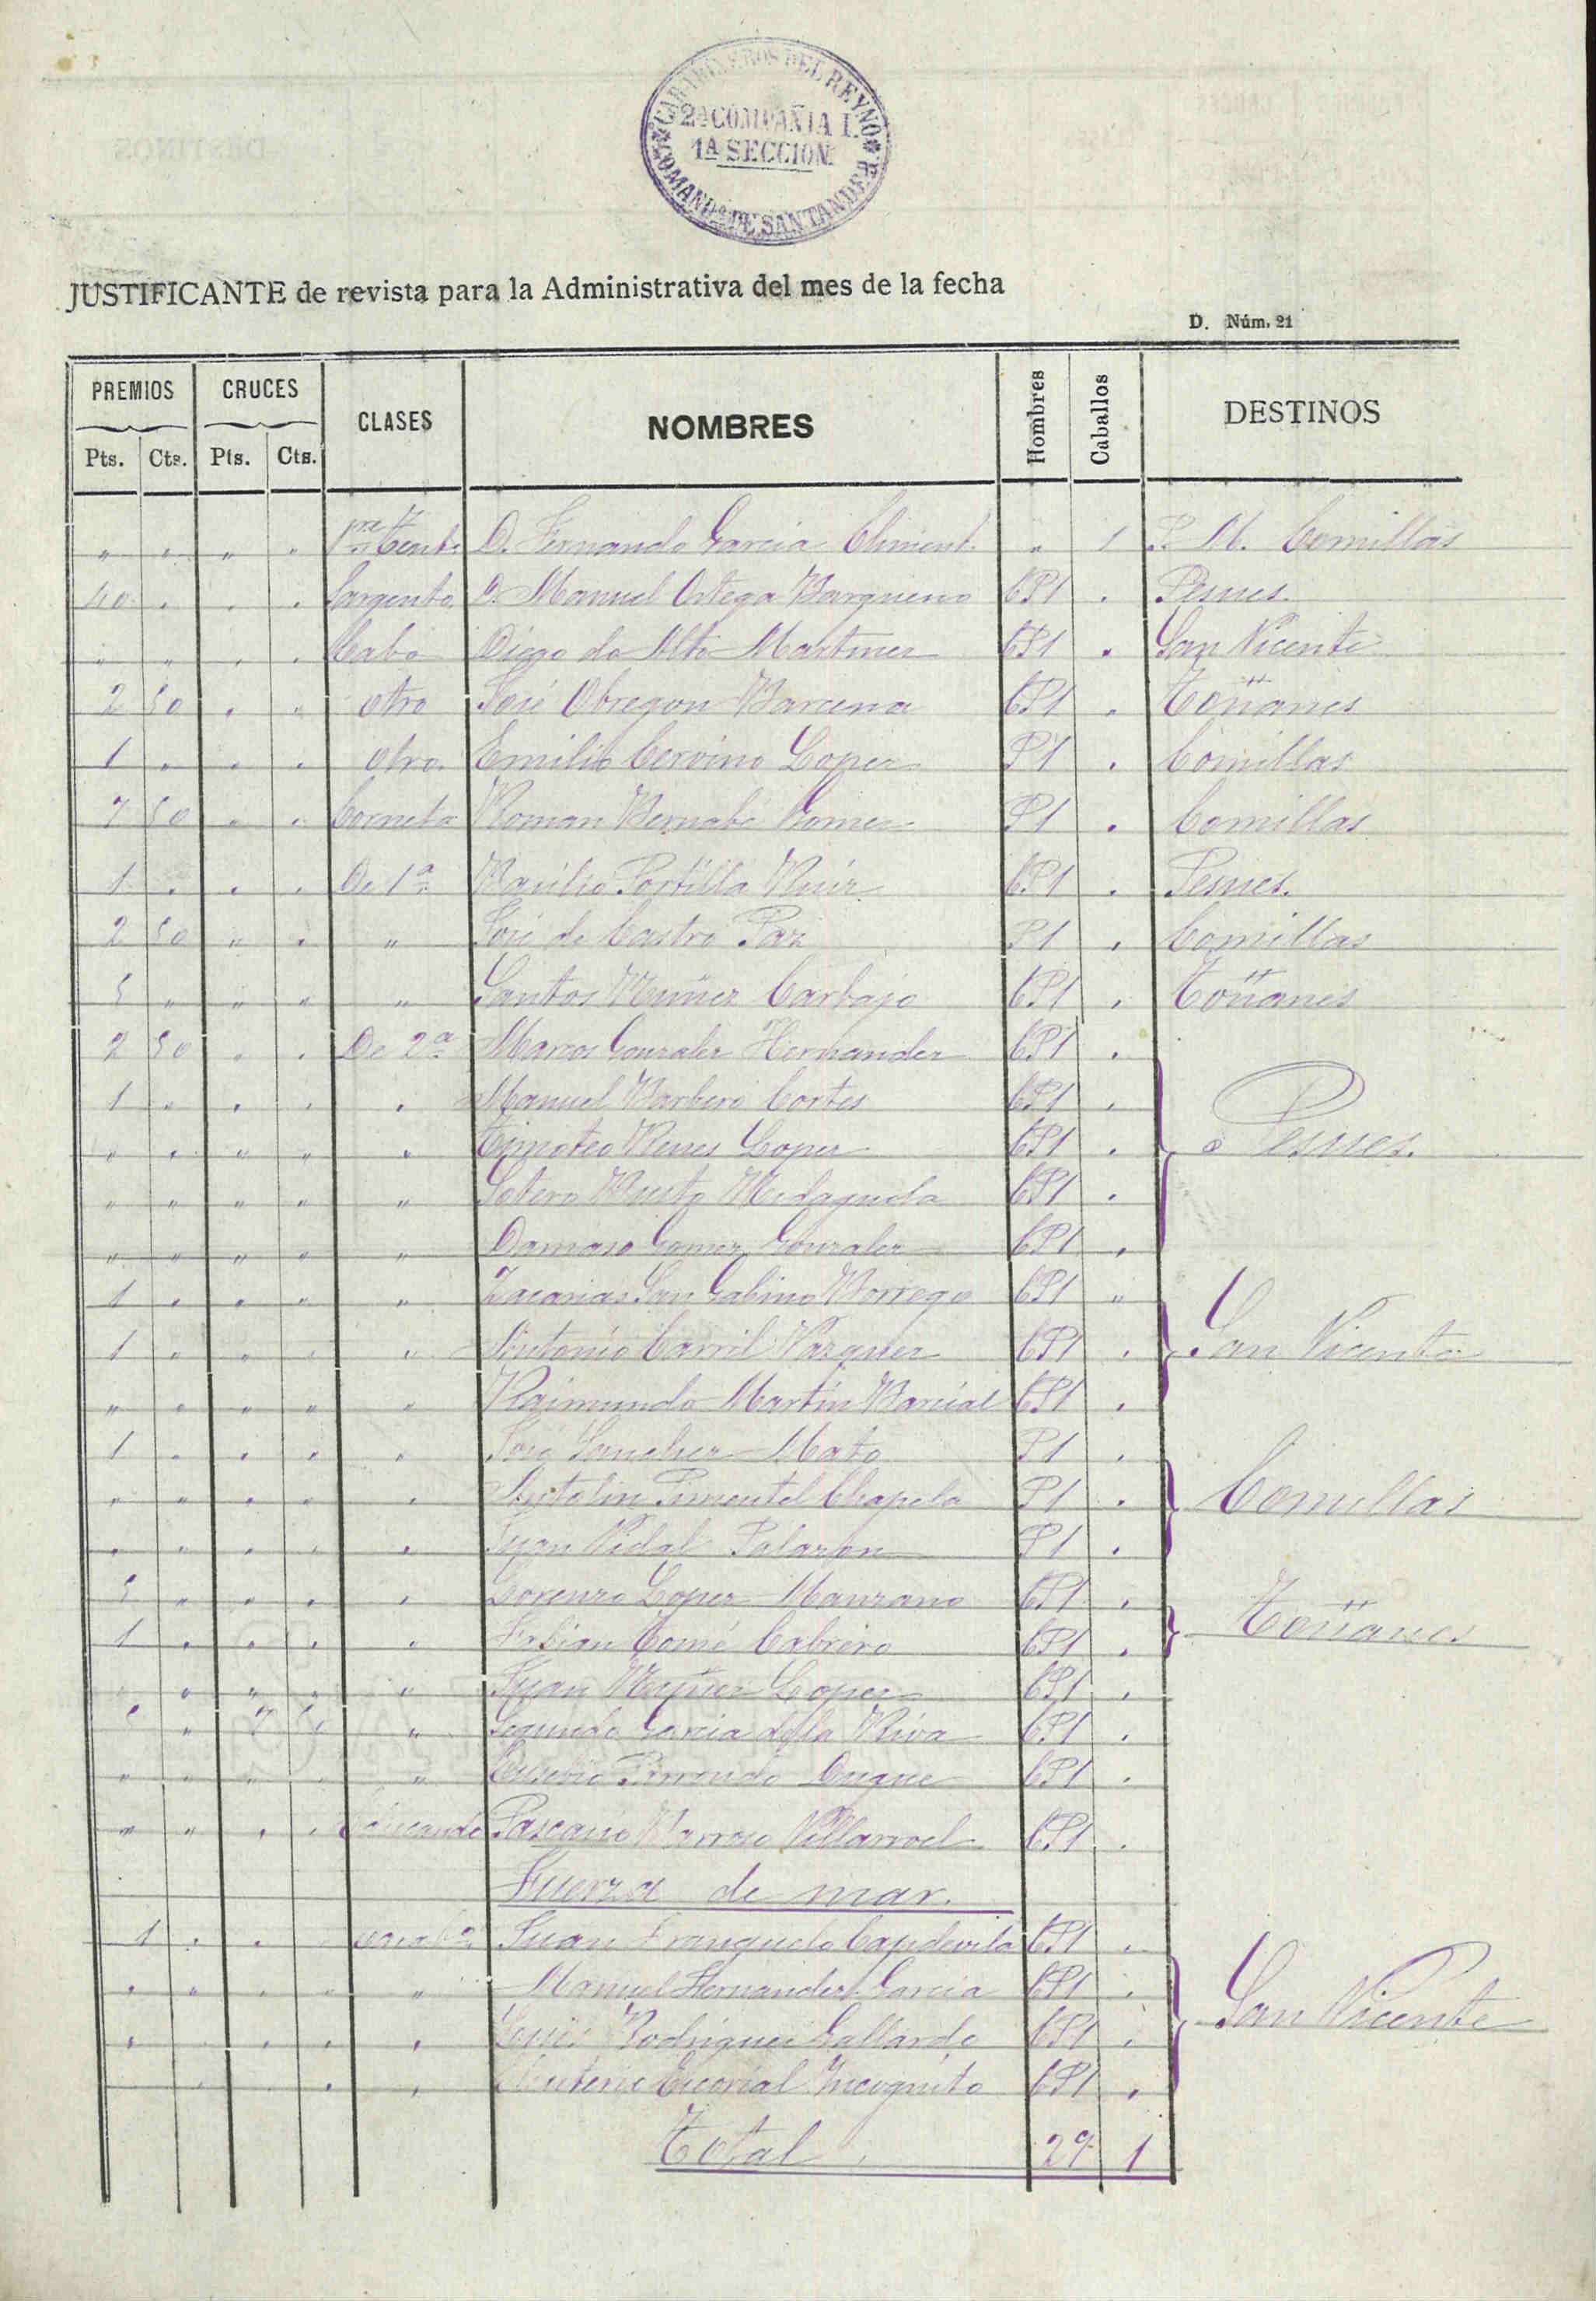 CARABINEROS DEL REYNO
2ª COMPAÑIA I.
1ª SECCION
COMANDª DE SANTANDER
JUSTIFICANTE de revista para la Administrativa del mes de la fecha
D. Núm. 21
PREMIOS CRUCES CLASES NOMBRES Hombres Caballos DESTINOS
Pts. Cts. Pts. Cts.
" " " " 1er Tente D. Fernando Garcia Climent " 1 P. M. Comillas
40 " " " Sargento D. Manuel Ortega Barqueno CP1 " Pesues.
" " " " Cabo Diego de Martinez CP1 " San Vicente
2 50 " " otro José Obregon Barcena CP1 " Toñanes
1 " " " otro Emilio Cervino Lopez P1 " Comillas
7 50 " " Corneta Roman Bernabé Gomez P1 " Comillas
1 " " " De 1ª Basilio Portilla Ruiz CP1 " Pesues.
2 50 " " " José de Castro Paz P1 " Comillas
5 " " " " Santos Muñez Carbajo CP1 " Toñanes
2 50 " " De 2ª Marcos Gonzalez Hernandez CP1 "
1 " " " " Manuel Barbero Cortes CP1 "
" " " " " Timoteo Lopez CP1 " Pesues.
" " " " " Sotero CP1 "
" " " " " Damaso Gomez Gonzalez CP1 "
1 " " " " Zacarias San Gabino Borrego CP1 "
1 " " " " Antonio Carril Vazquez CP1 " San Vicente
" " " " " Raimundo Martin Barcial CP1 "
1 " " " " José Sanchez Mato P1 "
" " " " " Antolin Pimentel Chapela P1 " Comillas
" " " " " Juan Vidal Palazon P1 "
5 " " " " Lorenzo Lopez Manzano CP1 "
1 " " " " Fabian Tomé Cabrero CP1 " Toñanes
" " " " " Juan Lopez CP1 "
5 " 7 50 " Segundo Garcia de la Riva CP1 "
" " " " " Eusebio Duque CP1 "
" " " " Educando Pascasio Barroso Villarroel CP1 "
Fuerza de mar.
1 " " " Juan Franquelo Capdevila CP1 "
" " " " " Manuel Hernandez Garcia CP1 "
" " " " " Rodriguez Gallardo CP1 " San Vicente
" " " " " Eleuterio Escorial Incognito CP1 "
Total 29 1